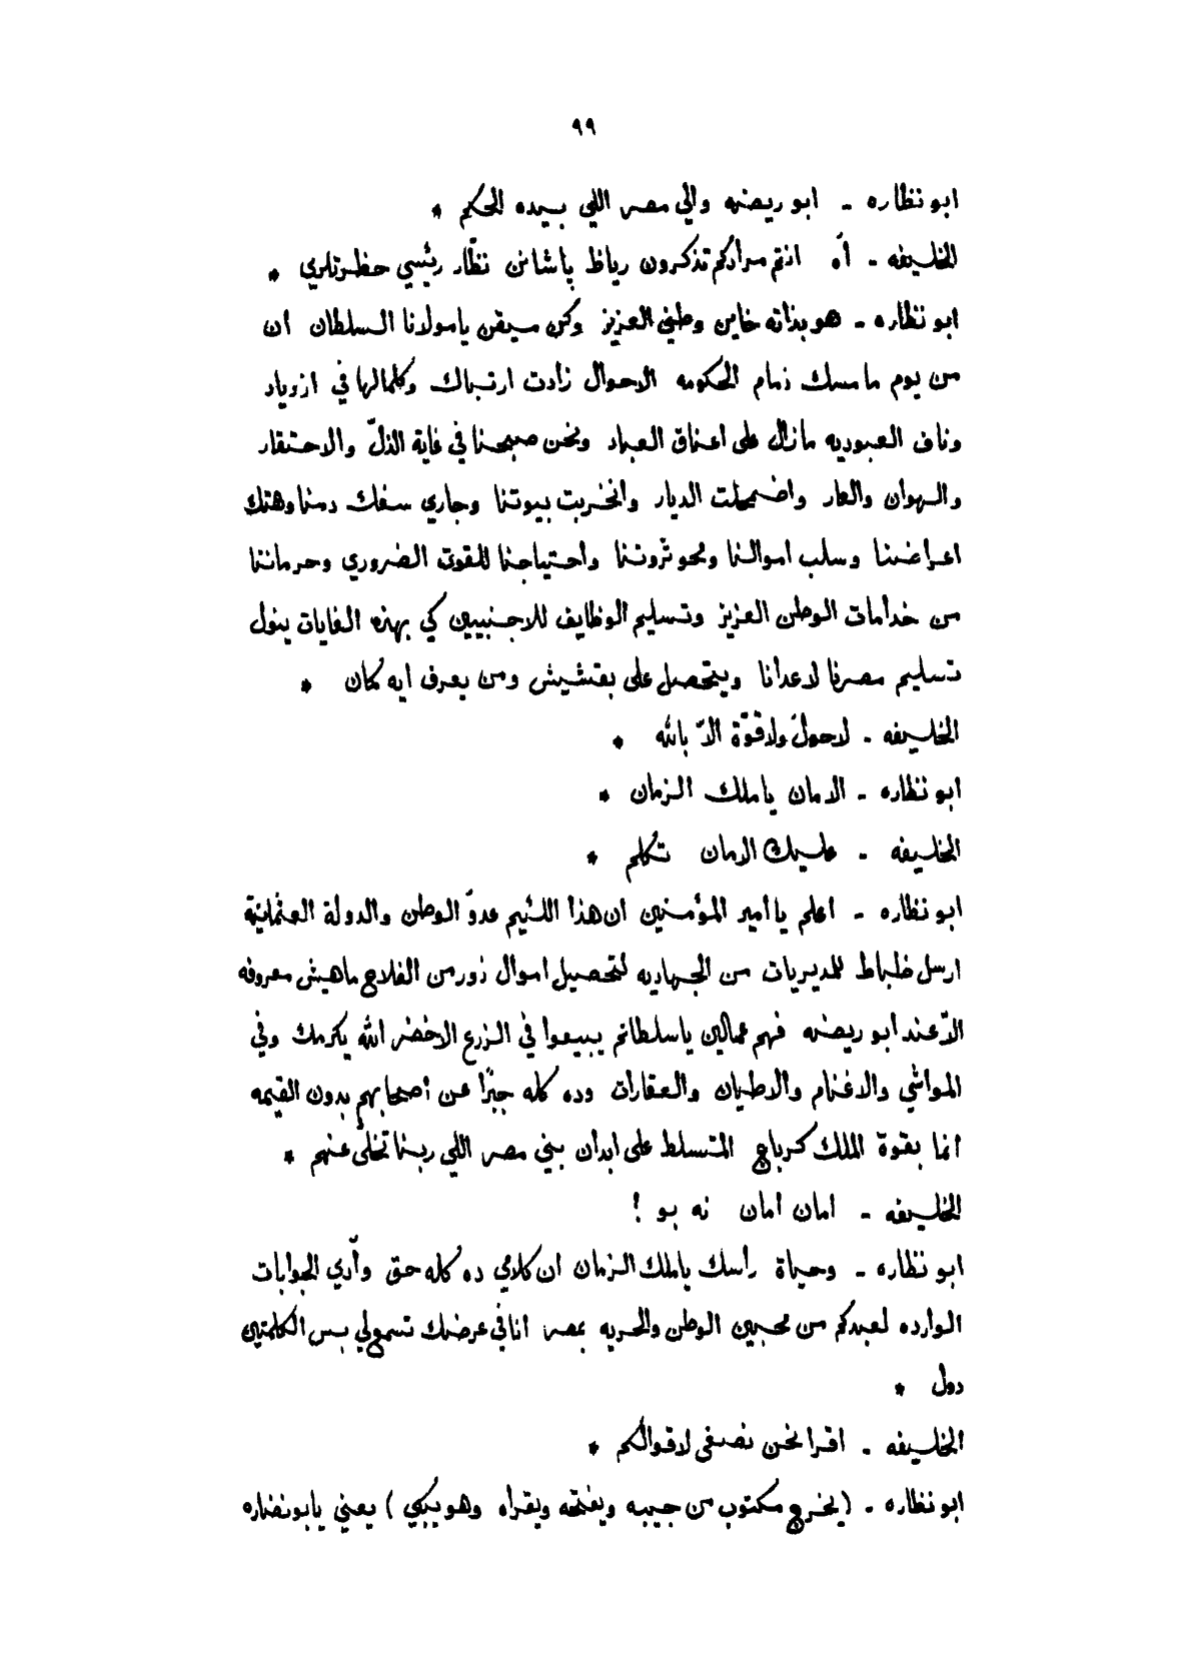 ٩٩
ابو نظاره - ابو ريضه والي مصر اللي بيده الحكم *
الخليفه - آه انتم مرادكم تذكرون رياظ پاشانن نظّار رئيسي حظرتلري *
ابو نظاره - هو بذاته خاين وطني العزيز وكن متيقن يا مولانا السلطان ان
من يوم ما مسك زمام الحكومه الاحوال زادت ارتباك وكلمالها في ازدياد
وناف العبوديه مازال على اعناق العباد ونحن صبحنا في غاية الذلّ والاحتقار
والهوان والعار واضمحلت الديار وانخربت بيوتنا وجاري سفك دمنا وهتك
اعراضنا وسلب اموالنا ومحو ثروتنا واحتياجنا للقوت الضروري وحرماننا
من خدامات الوطن العزيز وتسليم الوظايف للاجنبيين كي بهذه الغايات ينول
تسليم مصرنا لاعدانا ويتحصل على بقشيش ومن يعرف ايه كمان *
الخليفه - لاحول ولاقوّة الاّ بالله *
ابو نظاره - الامان يا ملك الزمان *
الخليفه - عليك الامان تكلم *
ابو نظاره - اعلم يا امير المؤمنين ان هذا اللئيم عدوّ الوطن والدولة العثمانية
ارسل ظباط للمديريات من الجهاديه لتحصيل اموال زور من الفلاح ماهيش معروفه
الاّ عند ابو ريضه فهم عمالين يا سلطانم يبيعوا في الزرع الاخضر الله يكرمك وفي
المواشي والاغنام والاطيان والعقارات وده كله جبرًا عن اصحابهم بدون القيمه
انما بقوة الملك كرباج المتسلط على ابدان بني مصر اللي ربنا تخلّى عنهم *
الخليفه - امان امان نه بو !
ابو نظاره - وحياة رأسك يا ملك الزمان ان كلامي ده كله حق وآدي الجوابات
الوارده لعبدكم من محبين الوطن والحريه بمصر انا في عرضك تسمعوا لي بس الكلمتين
دول *
الخليفه - اقرا نحن نصغى لاقوالكم *
ابو نظاره - (يخرج مكتوب من جيبه ويفتحه ويقراه وهو يبكي) يعني يا بو نضاره